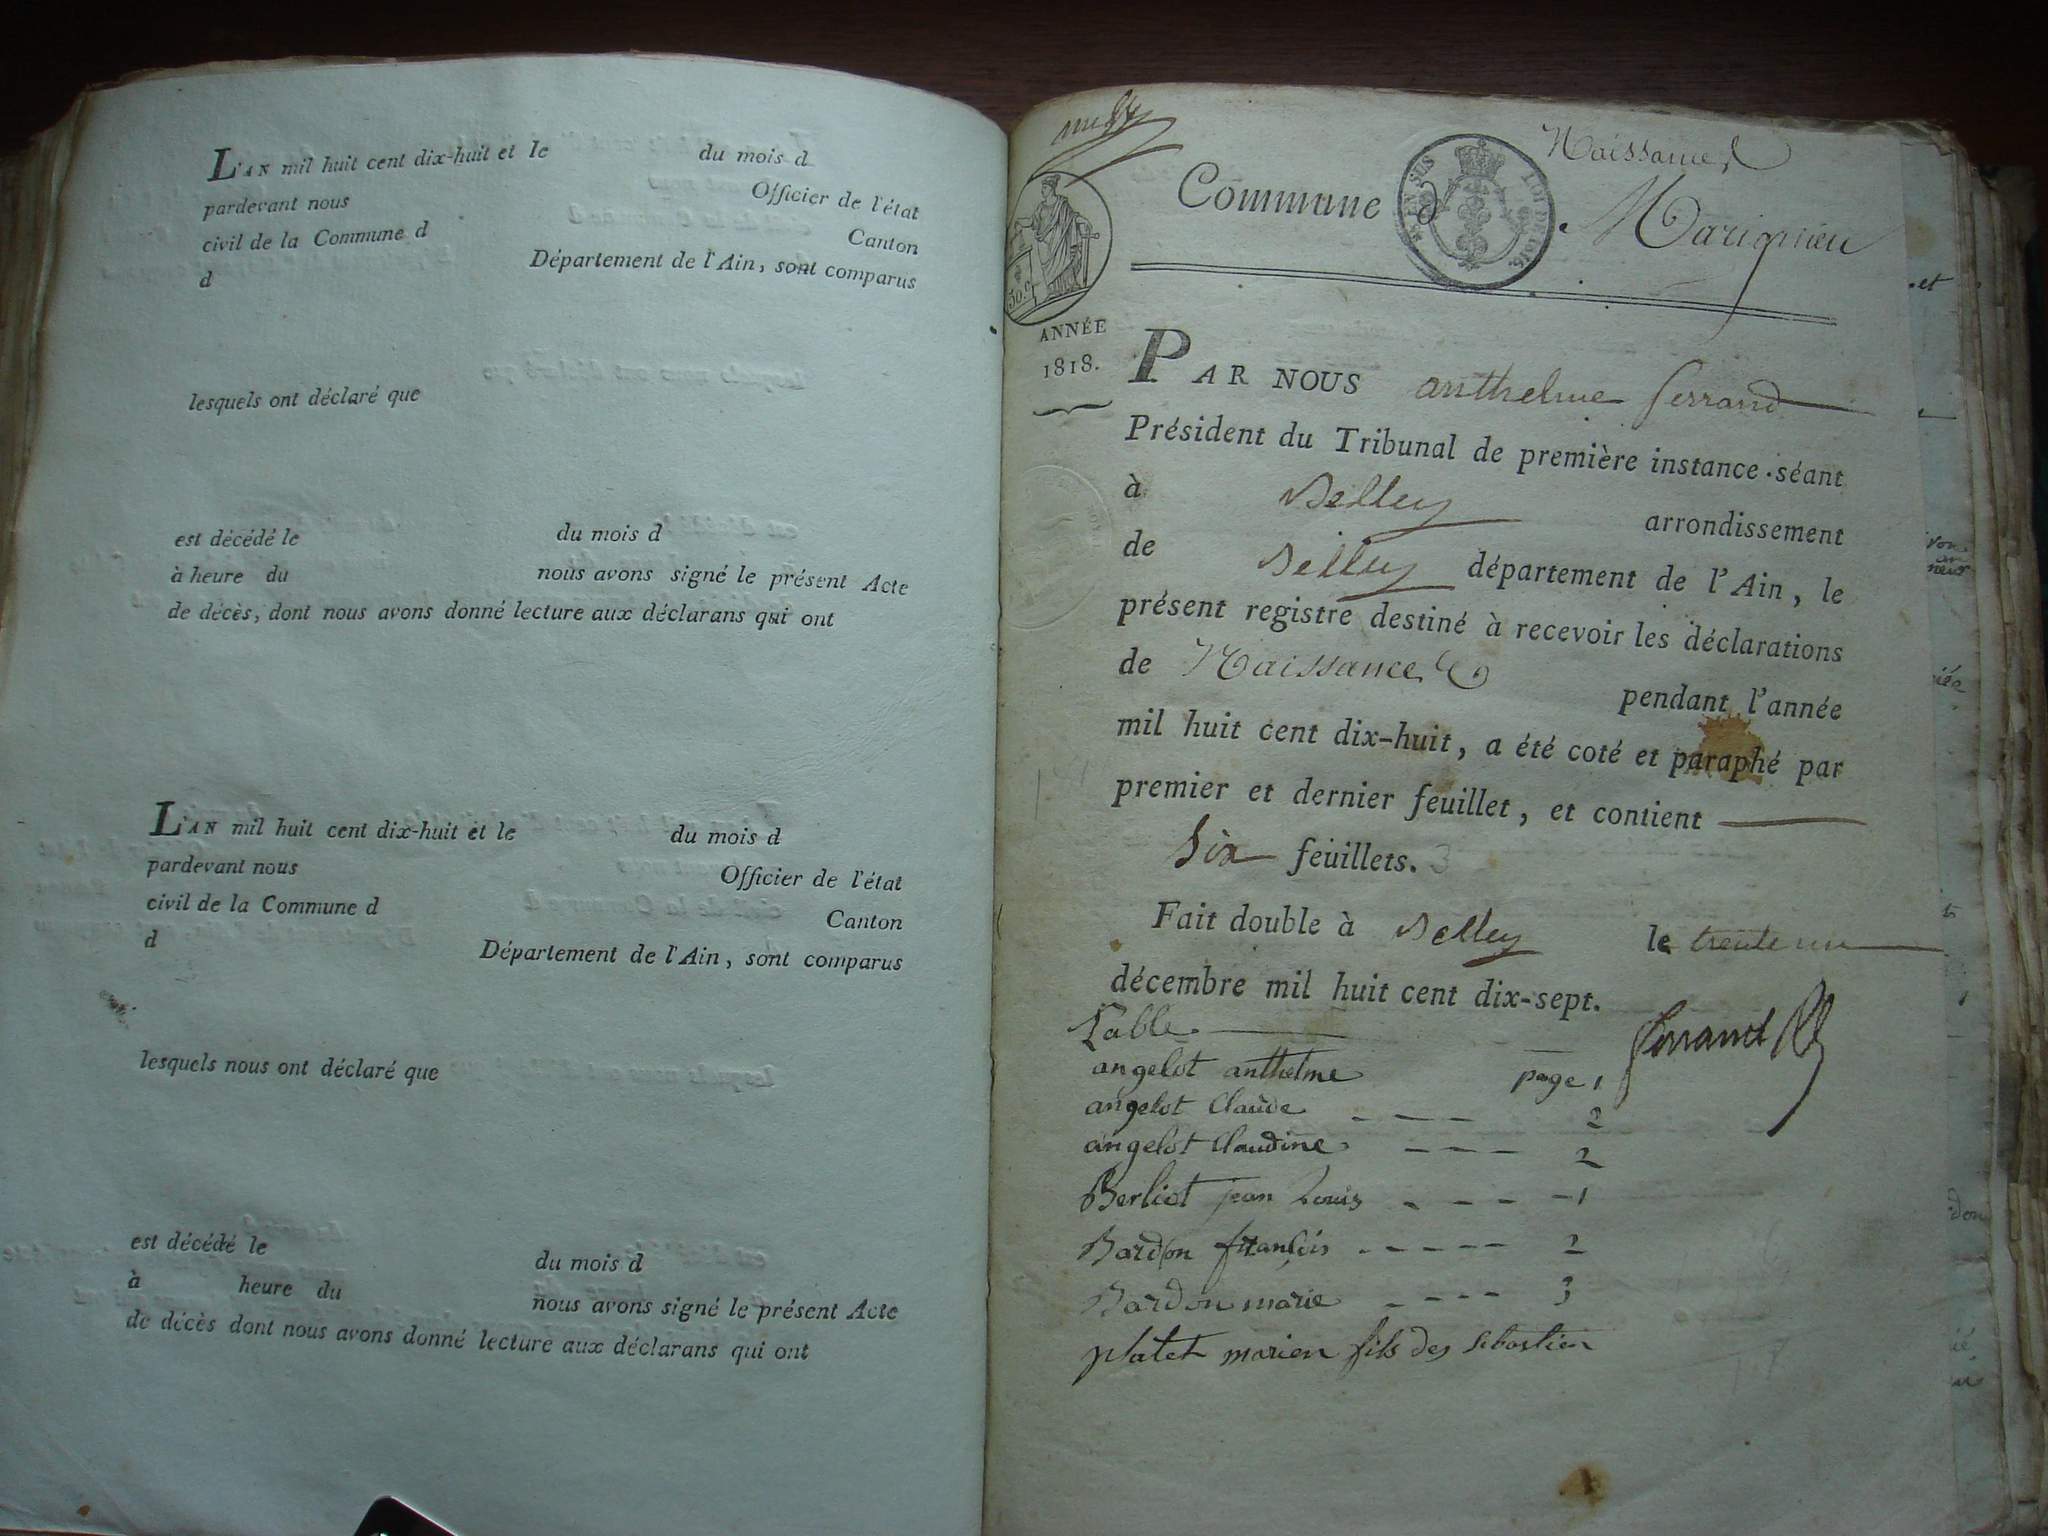 L'AN mil huit cent dix-huit et le du mois d
pardevant nous Officier de l'état
civil de la Commune d Canton
d Département de l'Ain, sont comparus
lesquels ont déclaré que
est décédé le du mois d
à heure du nous avons signé le présent Acte
de décès, dont nous avons donné lecture aux déclarans qui ont
L'AN mil huit cent dix-huit et le du mois d
pardevant nous Officier de l'état
civil de la Commune d Canton
d Département de l'Ain, sont comparus
lesquels nous ont déclaré que
est décédé le du mois d
à heure du nous avons signé le présent Acte
de décès dont nous avons donné lecture aux déclarans qui ont
Naissances
Commune d Marignieu
EN SUS LOI DE 1816.
50.c
ANNÉE
1818.
PAR NOUS anthelme ferrand
Président du Tribunal de première instance séant
à Belley arrondissement
de Belley département de l'Ain, le
présent registre destiné à recevoir les déclarations
de Naissances pendant l'année
mil huit cent dix-huit, a été coté et paraphé par
premier et dernier feuillet, et contient
Six feuillets. 3
Fait double à Belley le trente un
décembre mil huit cent dix-sept.
Table ferrand
angelot anthelme page 1
angelot Claude 2
angelot Claudine 2
Berliot jean Louis 1
Bardon françois 2
Bardon marie 3
platet marien fils des sebastien